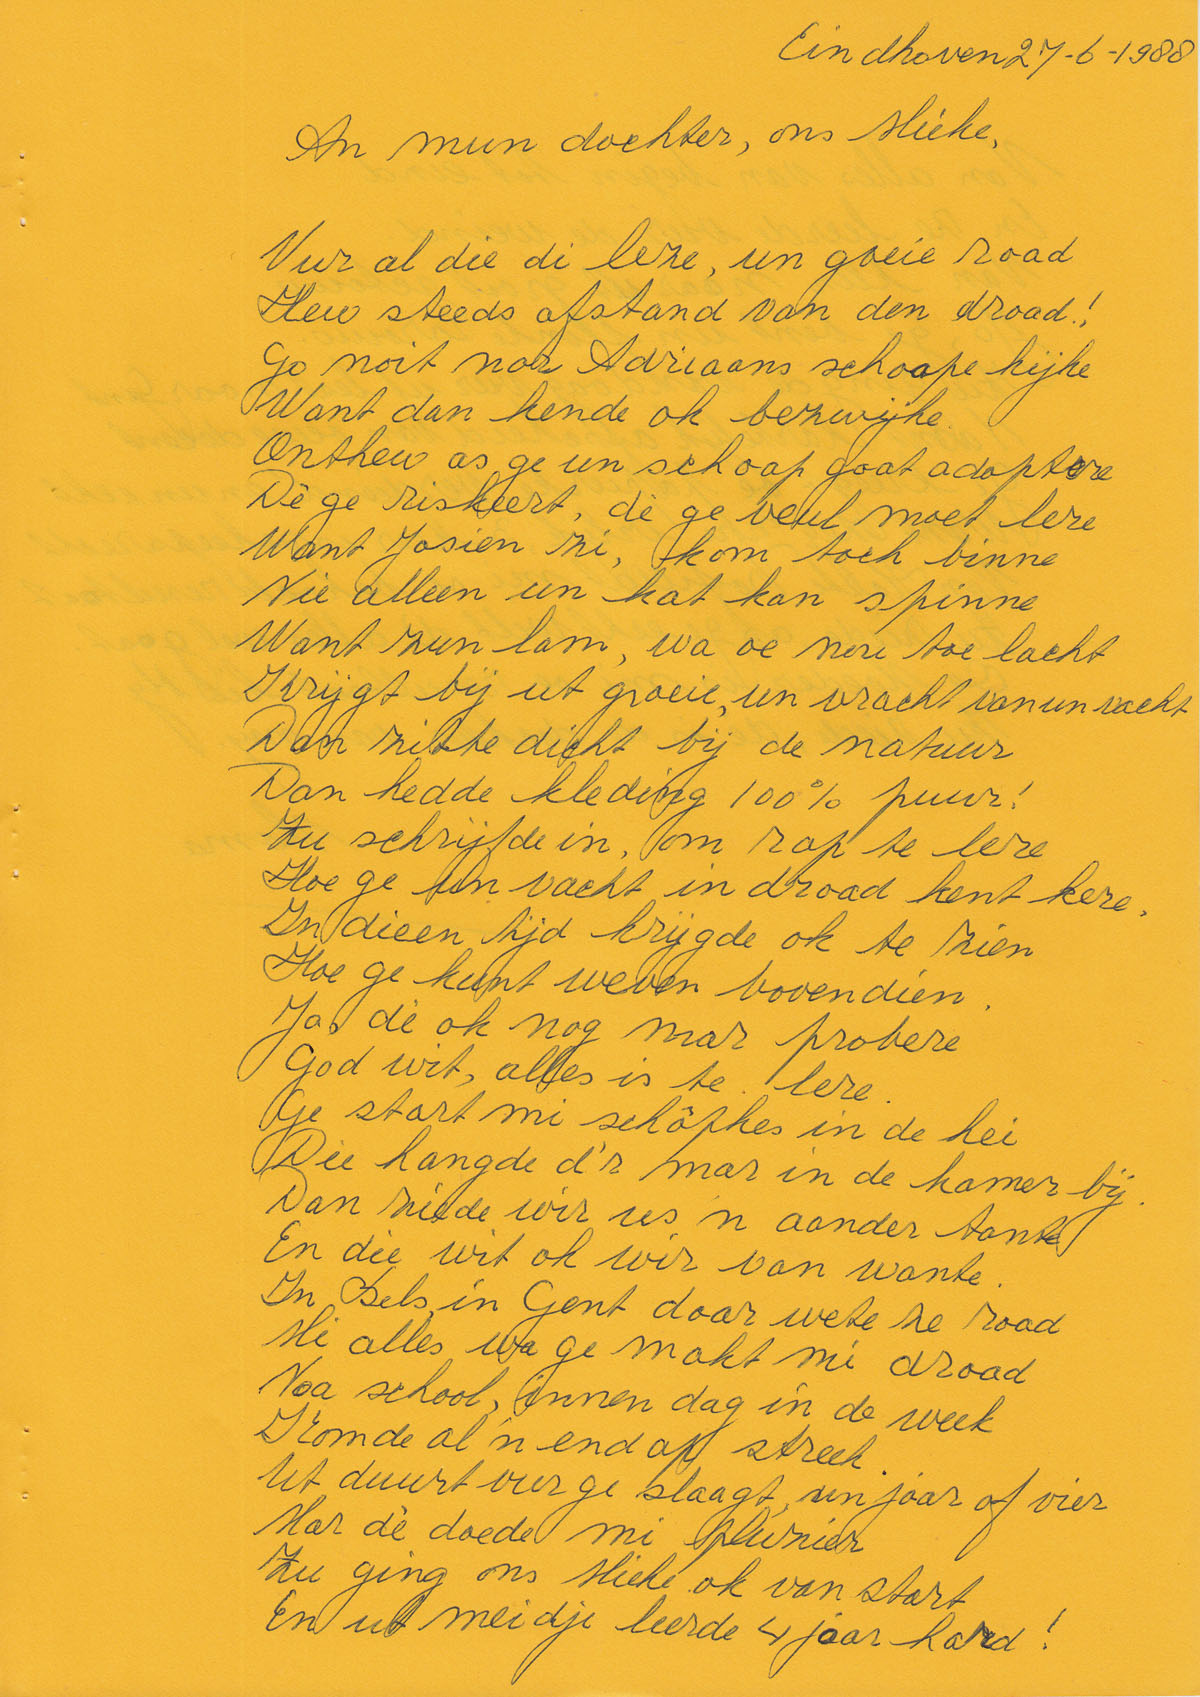 Eindhoven 27-6-1988
An mun dochter, ons Mieke,
Vur al die di leze, un goeie road
Hew steeds afstand van den droad!
Go noit nor Adriaans schoape kijke
Want dan kende ok bezwijke.
Onthew as ge un schoap goat adoptere
Dè ge riskeert, dè ge veul moet lere
Want Josien zi, kom toch binne
Nie alleen un kat kan spinne
Want zun lam, wa oe nou toe lacht
Krijgt bij ut groeie, un vracht van un vacht
Dan zitte dicht bij de natuur
Dan hedde kleding 100% puur!
Zu schrijfde in, om rap te lere
Hoe ge un vacht in droad kent kere,
In dieen tijd krijgde ok te zien
Hoe ge kunt weven bovendien.
Ja, dè ok nog mar probere
God wit, alles is te lere.
Ge start mi schôpkes in de hei
Die hangde d'r mar in de kamer bij.
Dan ziede wir us 'n aander tante
En die wit ok wir van wante.
In Bels, in Gent daar wete ze road
Mi alles wa ge makt mi droad
Noa school, innen dag in de week
Komde al 'n end op streek.
Ut duurt vur ge slaagt, un jaar of vier
Mar dè doede mi plwzier
Zu ging ons Mieke ok van start
En ut meidje leerde 4 jaar hard!